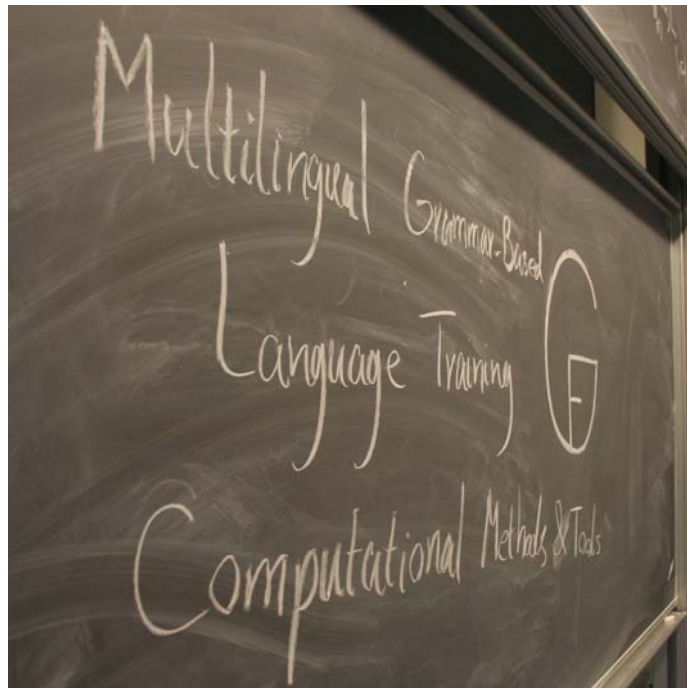 Multilingual Grammar-Based
Language Training GF
Computational Methods & Tools